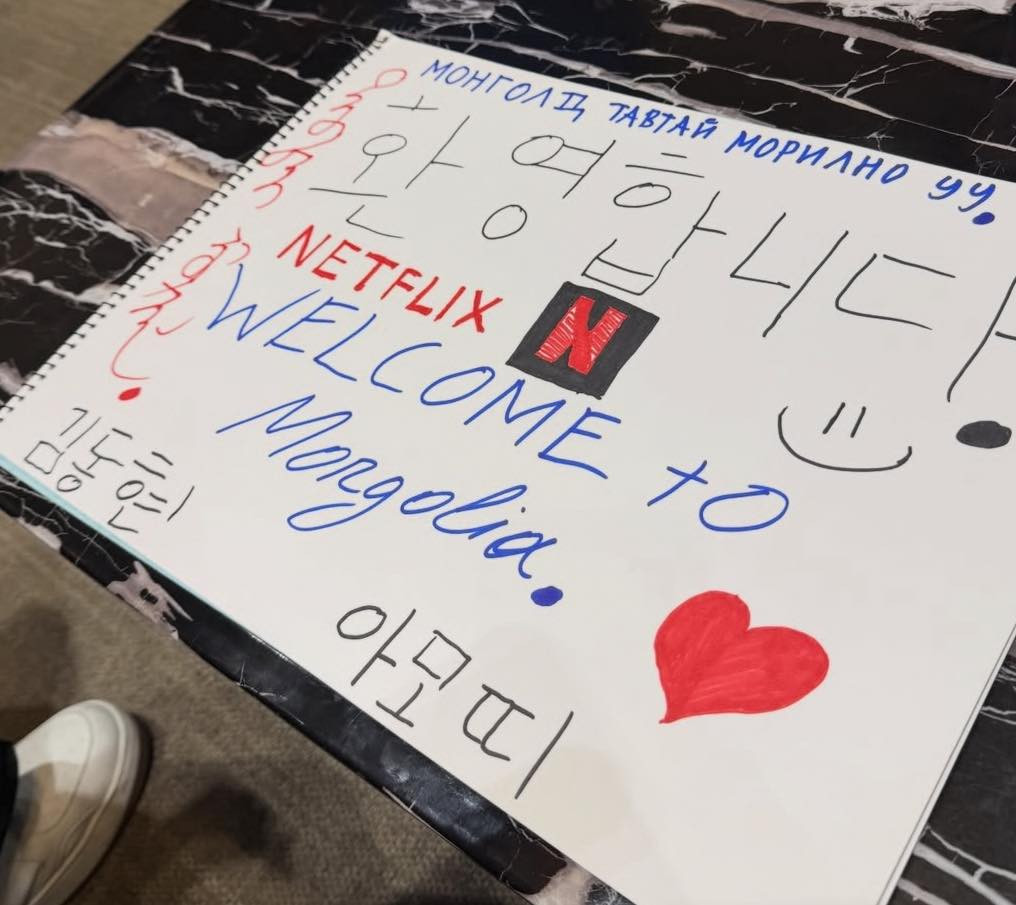 МОНГОЛД ТАВТАЙ МОРИЛНО УУ.
환영합니다!
NETFLIX
N
WELCOME to
Mongolia.
김동현
아모띠